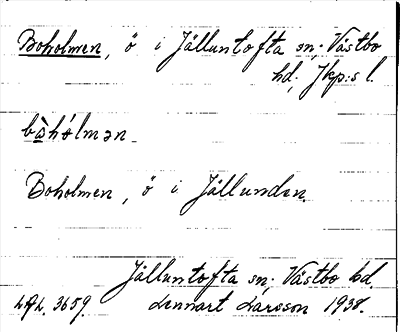 Boholmen, ö i Jälluntofta sn; Västbo
hd; Jkp:s l.
bàhólmən
Boholmen, ö i Jällunden.
Jälluntofta sn; Västbo hd.
LAL. 3659. Lennart Larsson 1938.